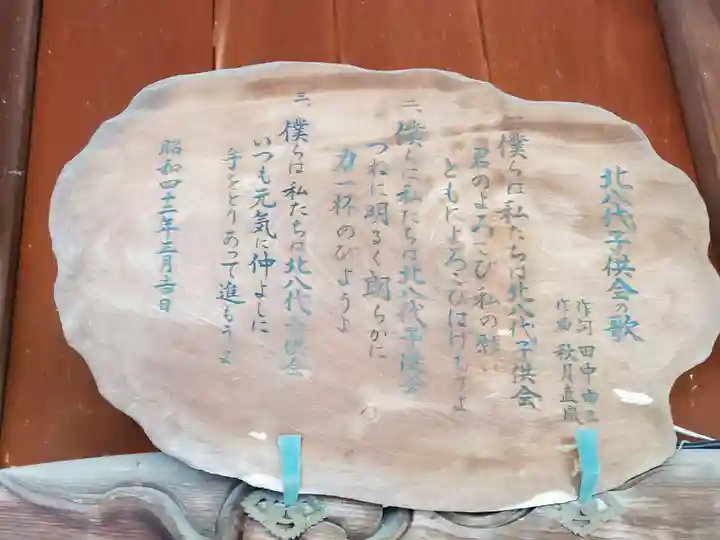 北八代子供会の歌
作詞 田中由
作曲 秋月直
一、僕らは私たちは北八代子供会
君のよろこび私の
ともによろこびはげもうよ
二、僕らは私たちは北八代子供会
つねに明るく朗らかに
力一杯のびようよ
三、僕らは私たちは北八代子供会
いつも元気に仲よしに
手をとりあって進もうよ
昭和四十二年三月吉日